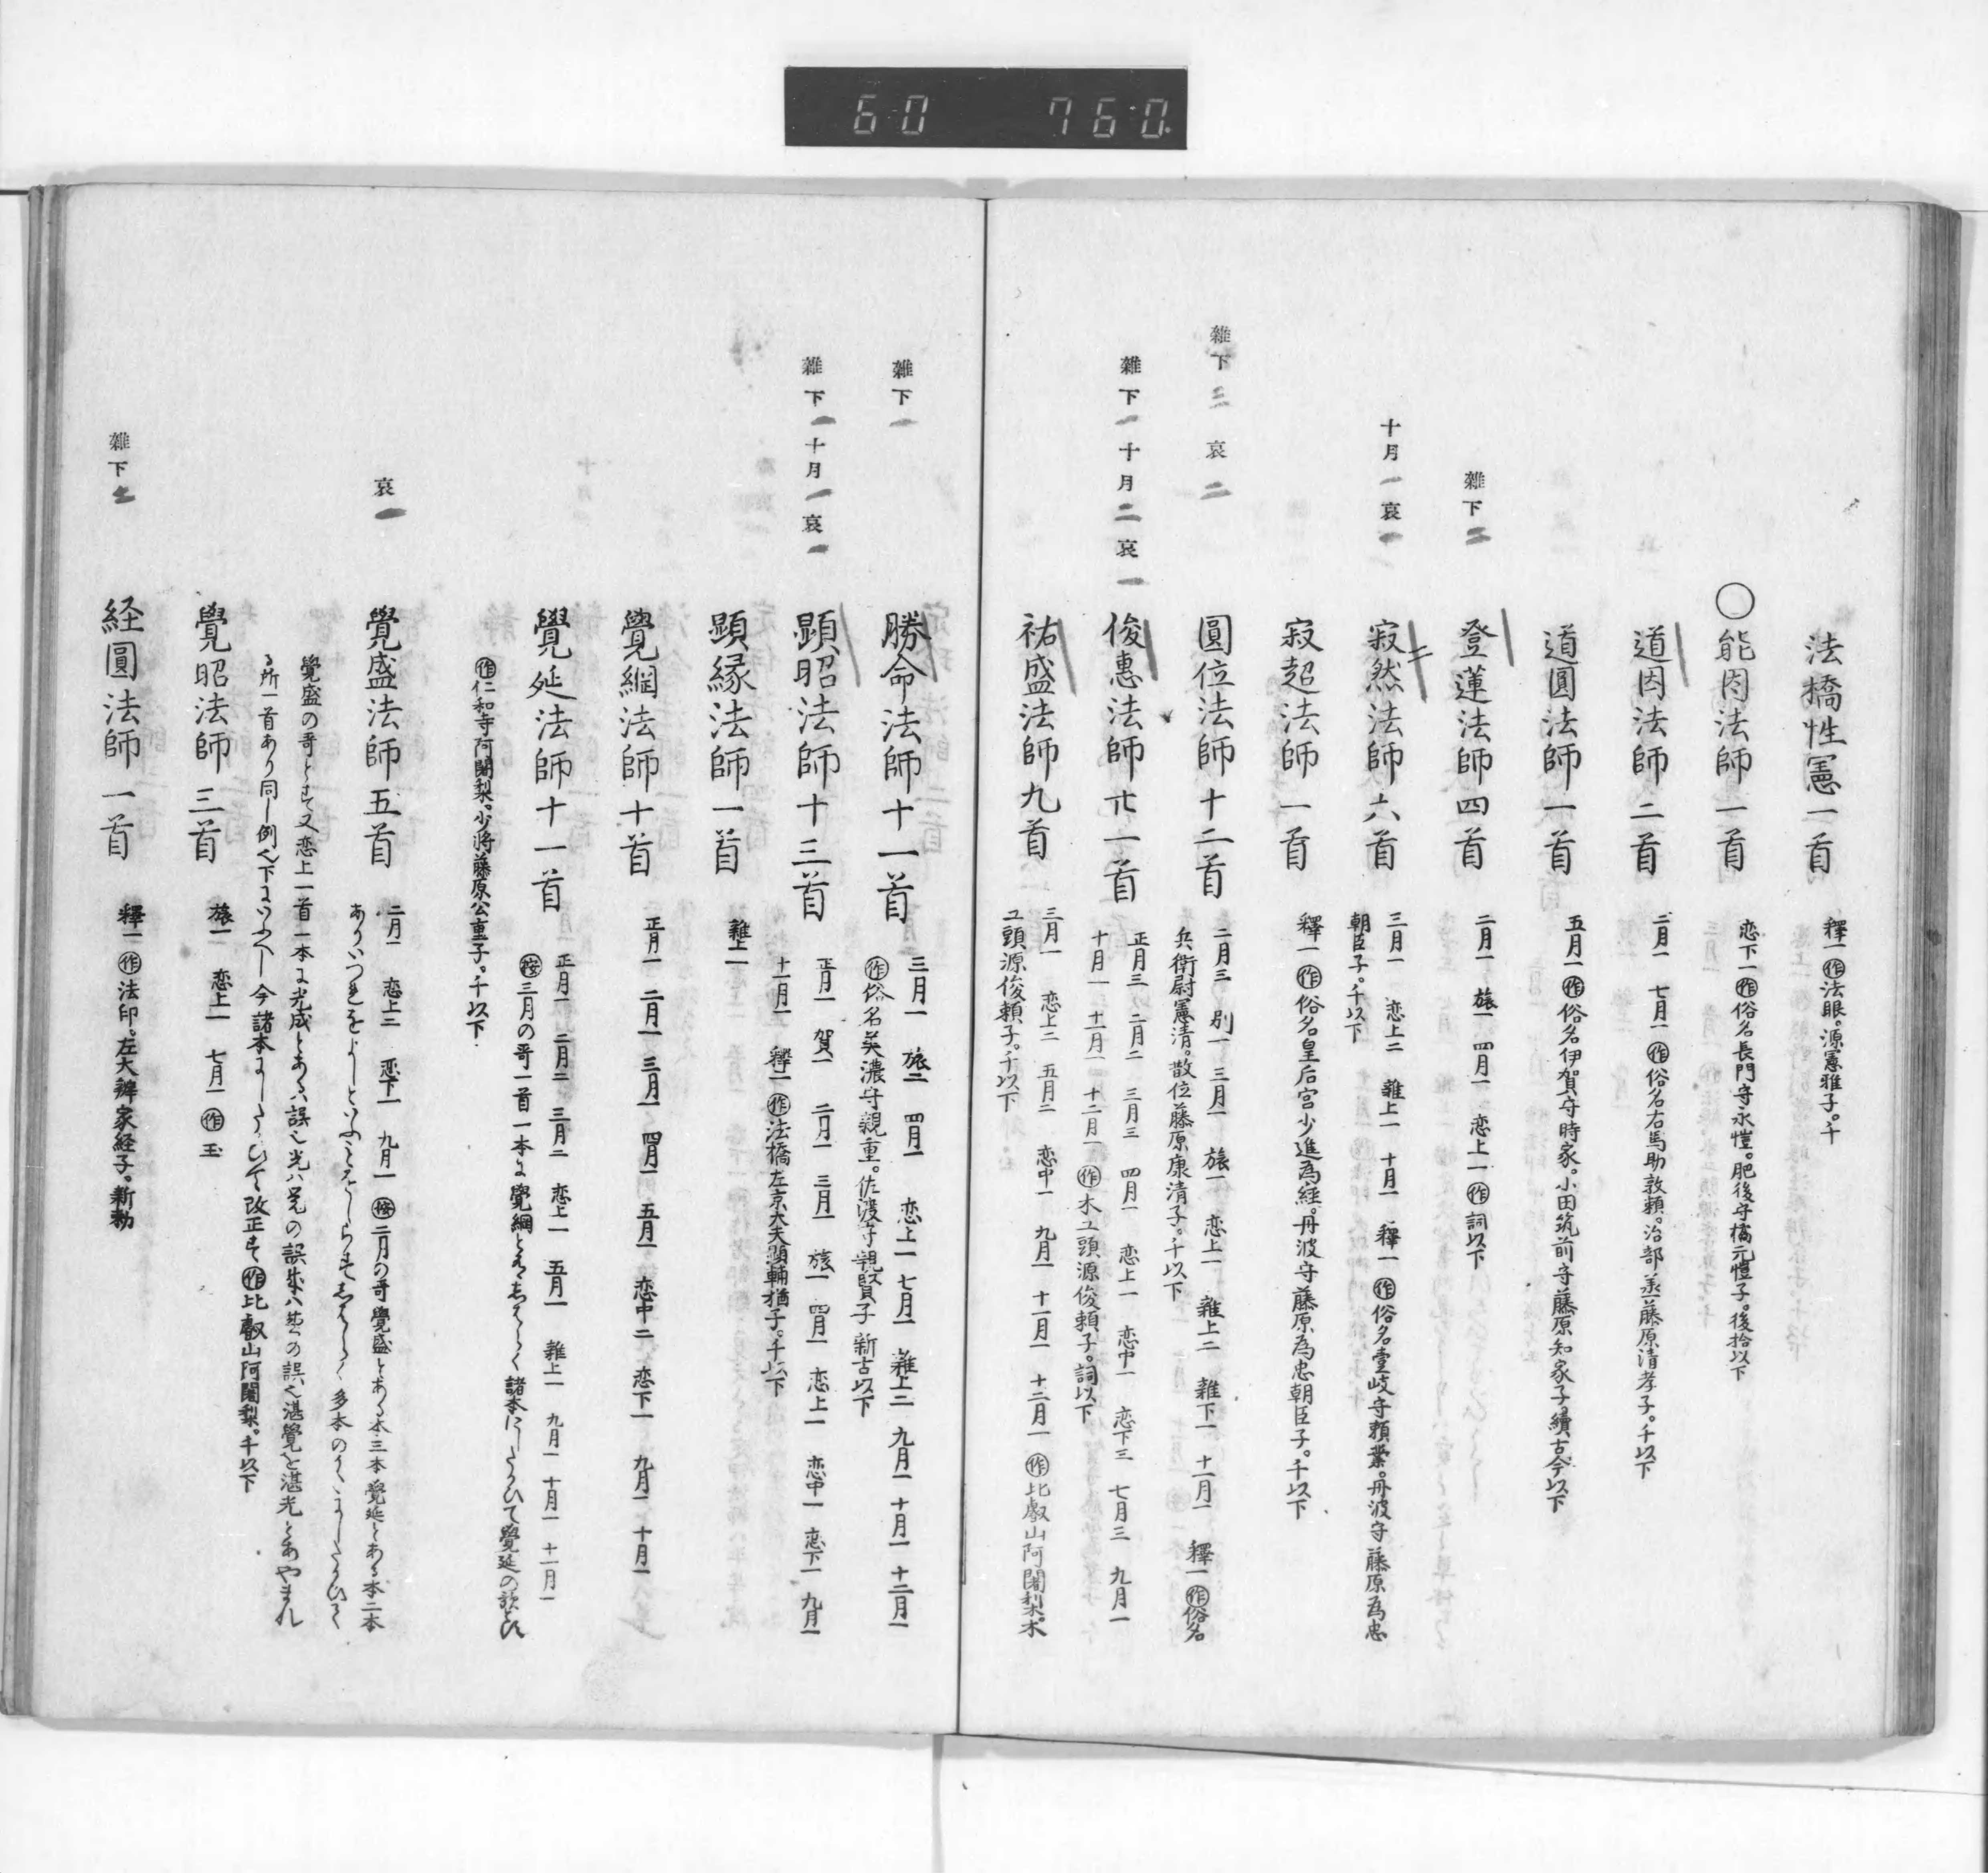 60 760.
法橋性憲一首
釋一 作 法眼。源憲雅子。千
○能因法師一首
恋下一 作 俗名長門守永愷。肥後守橘元愷子。後拾以下
道因法師二首
二月一 七月一 作 俗名右馬助敦頼。治部丞藤原清孝子。千以下
道圓法師一首
五月一 作 俗名伊賀守時家。小田筑前守藤原知家子。續古今以下
雜下二
登蓮法師四首
二月一 旅一 四月一 恋上一 作 詞以下
十月一 哀一
寂然法師六首
三月一 恋上二 雜上一 十月一 釋一 作 俗名壹岐守頼業。丹波守藤原為忠
朝臣子。千以下
寂超法師一首
釋一 作 俗名皇后宮少進為経。丹波守藤原為忠朝臣子。千以下
雜下三 哀二
圓位法師十二首
二月三 別一 三月一 旅一 恋上一 雜上二 雜下一 十一月一 釋一 作 俗名
兵衛尉憲清。散位藤原康清子。千以下
雜下一 十月二 哀一
俊惠法師廿一首
正月三 二月二 三月三 四月一 恋上一 恋中一 恋下三 七月三 九月一
十月一 十一月一 十二月一 作 木工頭源俊頼子。詞以下
祐盛法師九首
三月一 恋上二 五月二 恋中一 九月一 十一月一 十二月一 作 比叡山阿闍梨。木
工頭源俊頼子。千以下
雜下一
勝命法師十一首
三月一 旅二 四月一 恋上一 七月一 雜上二 九月一 十月一 十二月一
作 俗名美濃守親重。佐渡守親賢子 新古以下
雜下一 十月一 哀一
顕昭法師十三首
正月一 賀一 二月一 三月一 旅一 四月一 恋上一 恋中一 恋下一 九月一
十一月一 釋二 作 法橋左京大夫顕輔猶子。千以下
顕縁法師一首
雜上一
覺綱法師十首
正月一 二月一 三月一 四月一 五月一 恋中二 恋下一 九月一 十月一
覺延法師十一首
正月一 二月二 三月二 恋上一 五月一 雜上一 九月一 十月一 十一月一
按 三月の哥一首一本に覺綱と 諸本に したかひて覺延の歌とす
作 仁和寺阿闍梨。少将藤原公重子。千以下
哀一
覺盛法師五首
二月一 恋上二 恋下一 九月一 按 二月の哥覺盛とある本三本覺延とある本二本
ありいつれをよしといふことをしらす 多本の かたに したかひて
覺盛の哥とす又恋上一首一本に光成とあるハ誤也光ハ覺の誤成ハ盛の誤也湛覺を湛光とあやまれ
る所一首あり同し例也下にいふへし今諸本に したかひて改正す 作 比叡山阿闍梨。千以下
覺昭法師三首
旅一 恋上一 七月一 作 玉
雜下
経圓法師一首
釋一 作 法印。左大辨家経子。新勅